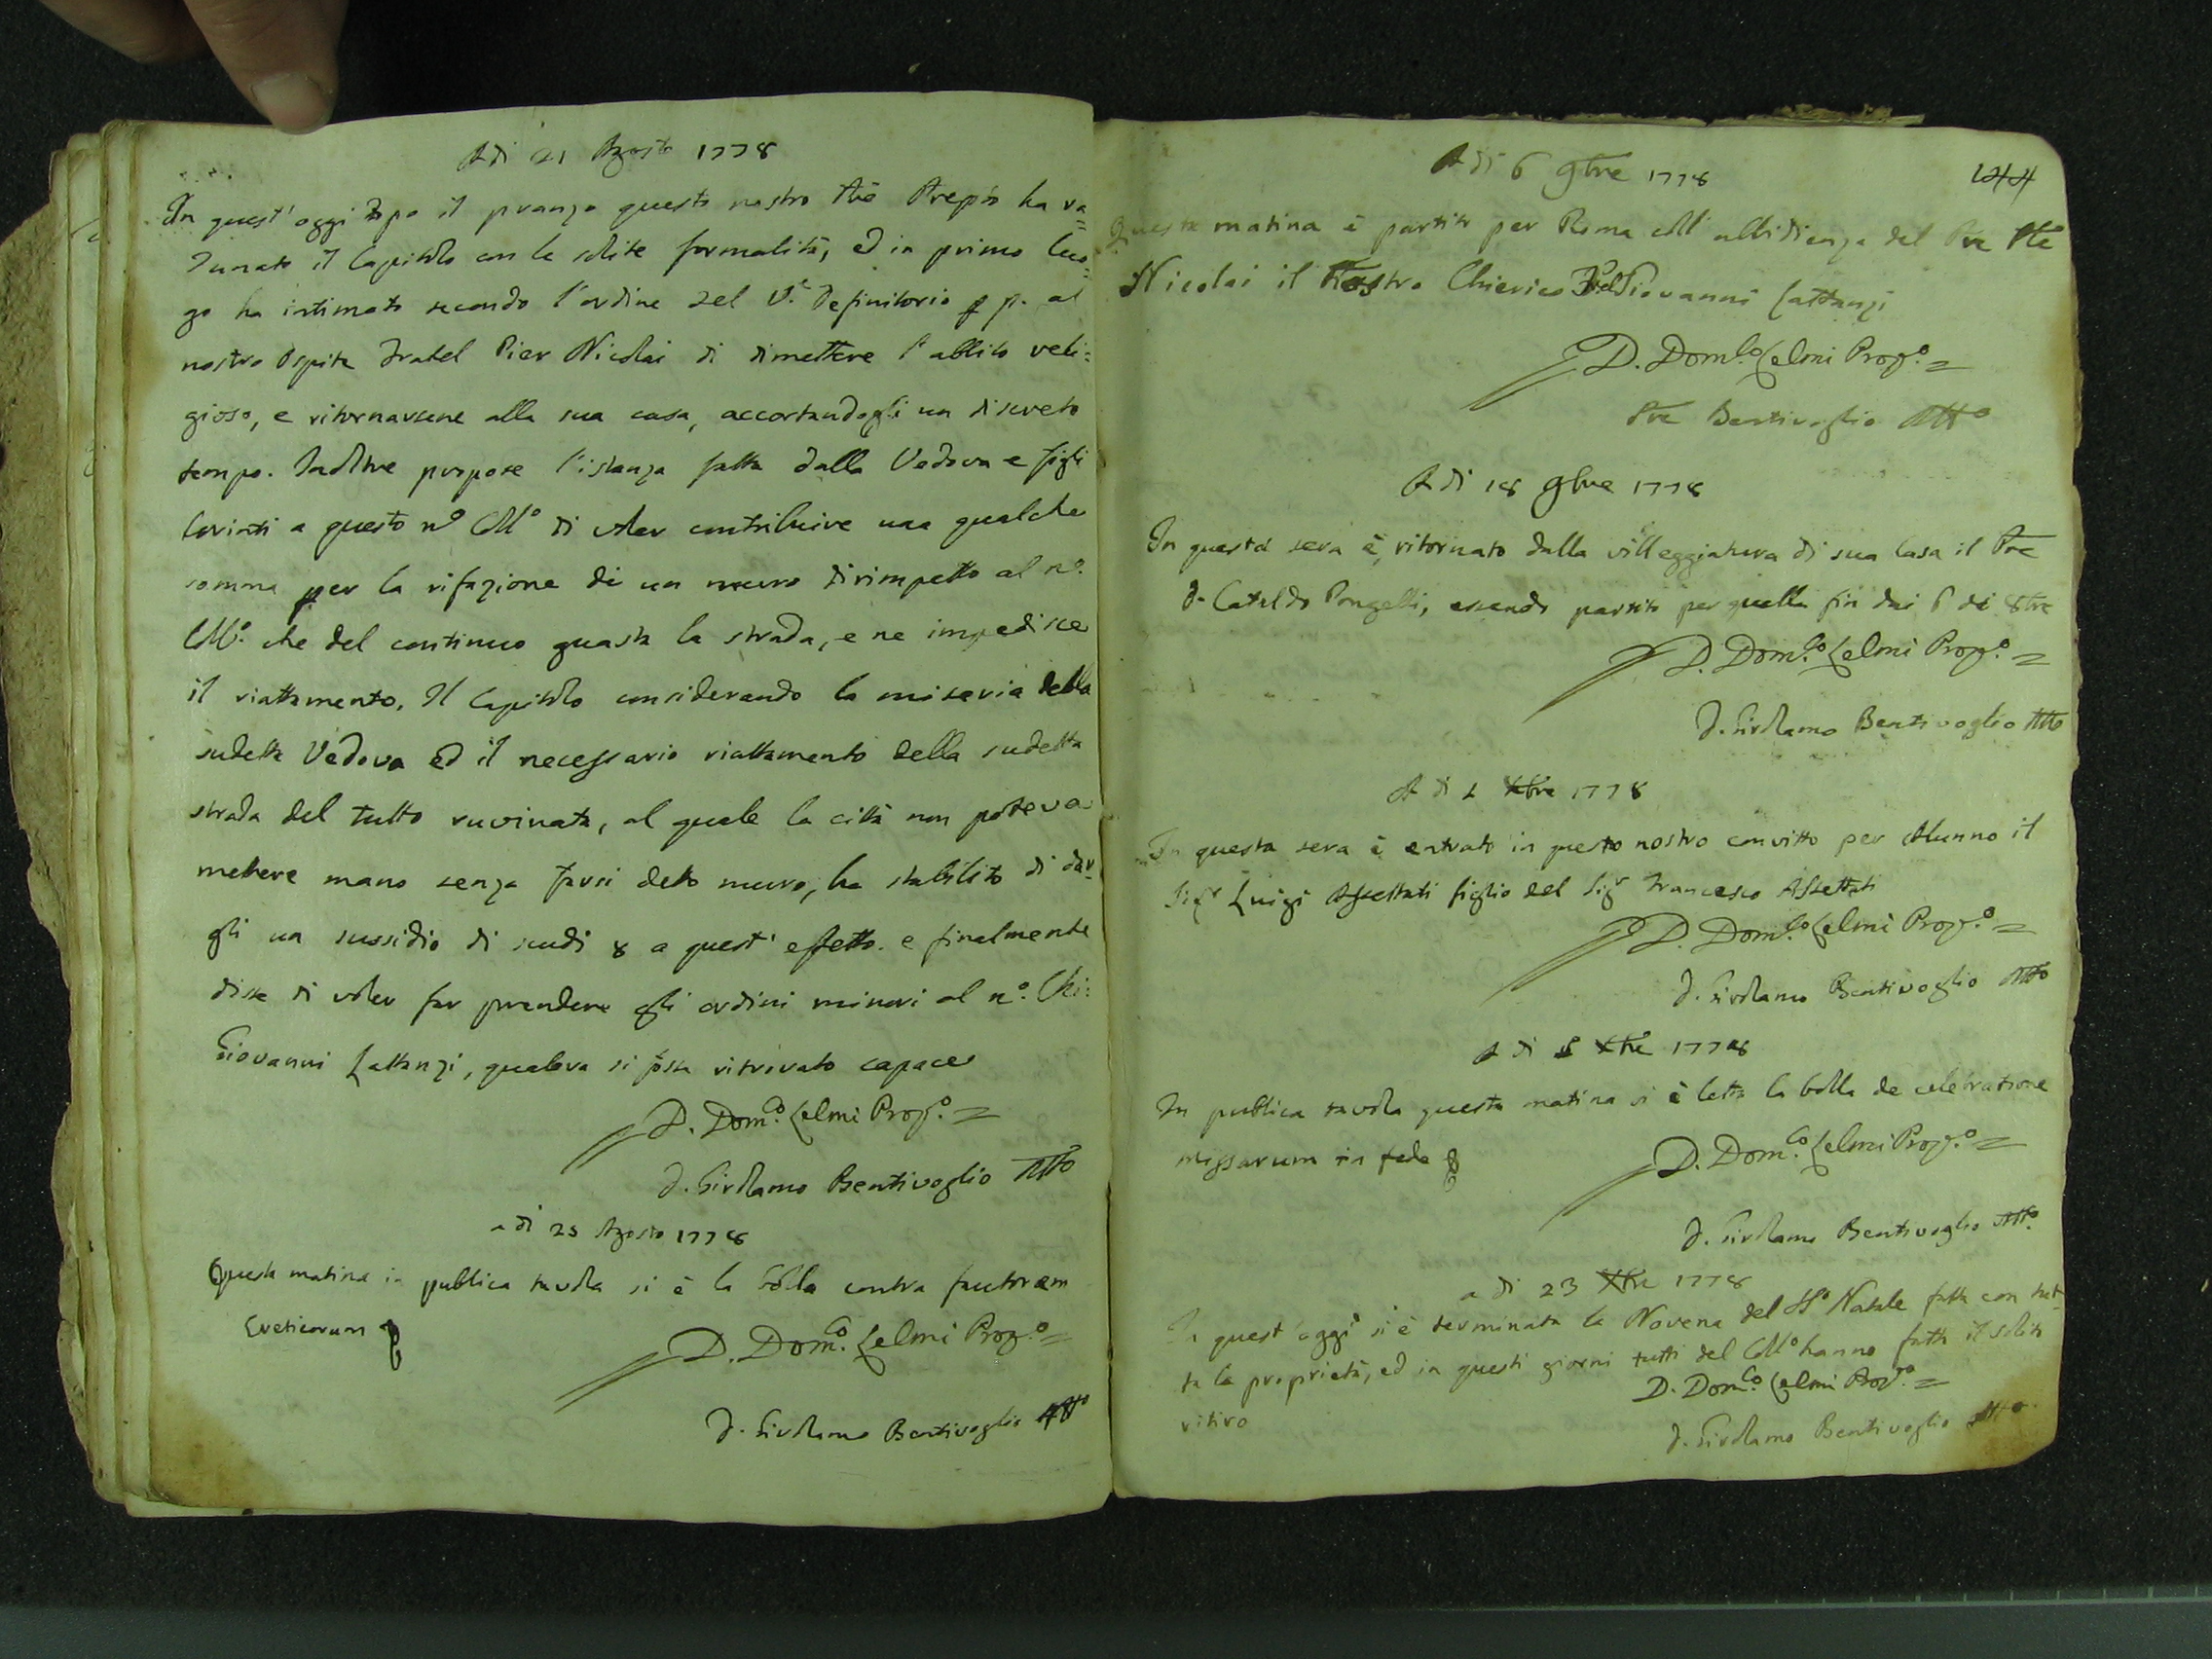 A di 21 Agosto 1778
In quest'oggi dopo il pranzo questo nostro Pre Prepto ha ra=
dunato il Capitolo con le solite formalità, ed in primo luo=
go ha intimato secondo l'ordine del V.e Definitorio p. al
nostro Ospite Fratel Pier Nicolai di dimettere l'abbito reli=
gioso, e ritornarsene alla sua casa, accortandogli un discreto
tempo. Inoltre propose l'istanza fatta dalla Vedova e figli
Corinti a questo no Collo di voler contribuire una qualche
somma per la rifazione di un muro dirimpetto al no.
Collo. che del continuo guasta la strada, e ne impedisce
il riattamento. Il Capitolo considerando la miseria della
sudetta Vedova ed il necessario riattamento della sudetta
strada del tutto ruvinata, al quale la città non poteva
mettere mano senza farsi detto muro, ha stabilito di dar=
gli un sussidio di scudi 8 a quest'effetto. e finalmente
disse di voler far prendere gli ordini minori al no. Chi:
Giovanni Lattanzi, qualora si fosse ritrivato capace
D. Domco. Celmi Propo. =
D. Girolamo Bentivoglio Atto
a di 25 Agosto 1778
Questa matina in publica tavola si è la bolla contra fautorem
Ereticorum
D. Domco. Celmi Propo. =
D. Girolamo Bentivoglio Atto
144
A di 6 9bre 1778
Questa matina è partito per Roma coll'ubbidienza del Pre Ple
Nicolai il Nostro Chierico Giovanni Lattanzi
D. Domco. Celmi Propo. =
Pre Bentivoglio Atto
A di 18 9bre 1778
In questa sera è ritornato dalla villeggiatura di sua Casa il Pre
D. Cataldo Pongelli, essendo partito per quella fin dai 6 di 8bre
D. Domco. Celmi Propo. =
D. Girolamo Bentivoglio Atto
A di 1 Xbre 1778
In questa sera è entrato in questo nostro convitto per Alunno il
Sigr Luigi Assettati figlio del Sigr Francesco Assettati
D. Domco. Celmi Propo. =
D. Girolamo Bentivoglio Atto
A di 8 Xbre 1778
In publica tavola questa matina si è letta la bolla de celebratione
missarum in fede
D. Domco. Celmi Propo. =
D. Girolamo Bentivoglio Atto.
a di 23 Xbre 1778
In quest'oggi si è terminata la Novena del SSo Natale fatta con tut=
ta la proprietà, ed in questi giorni tutti del Collo hanno fatto il solito
ritiro
D. Domco. Celmi Propo. =
D. Girolamo Bentivoglio Atto